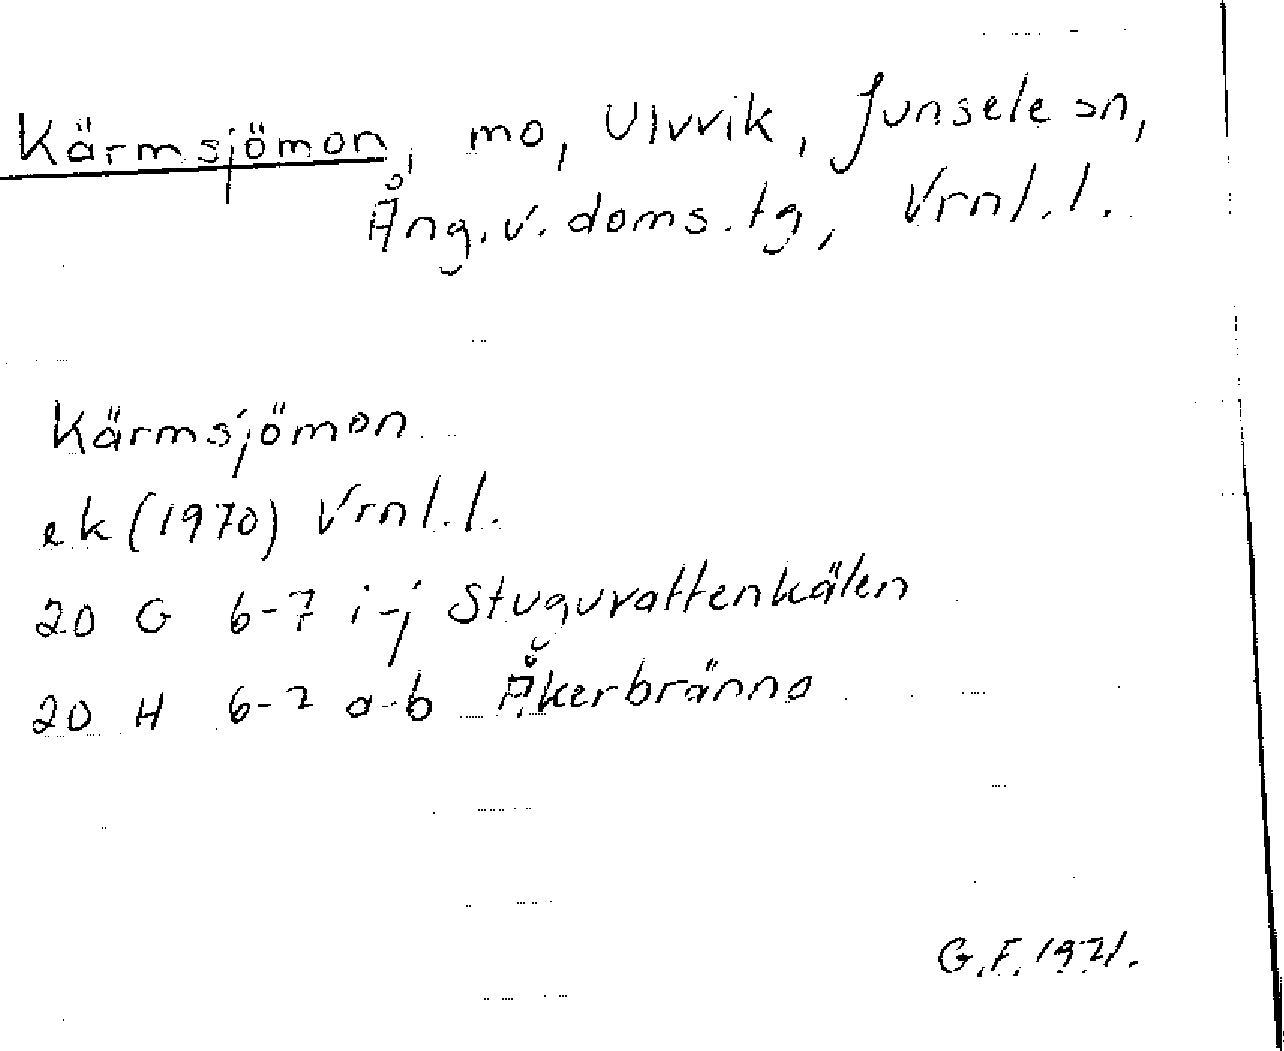 Kärmsjömon, mo, Ulvvik, Junsele sn,
Ång. v. doms. tg, Vrnl. l.
Kärmsjömon
ek (1970) Vrnl. l.
20 G 6-7 i-j Stuguvattenkälen
20 H 6-7 a-b Åkerbränna
G. F. 1971.